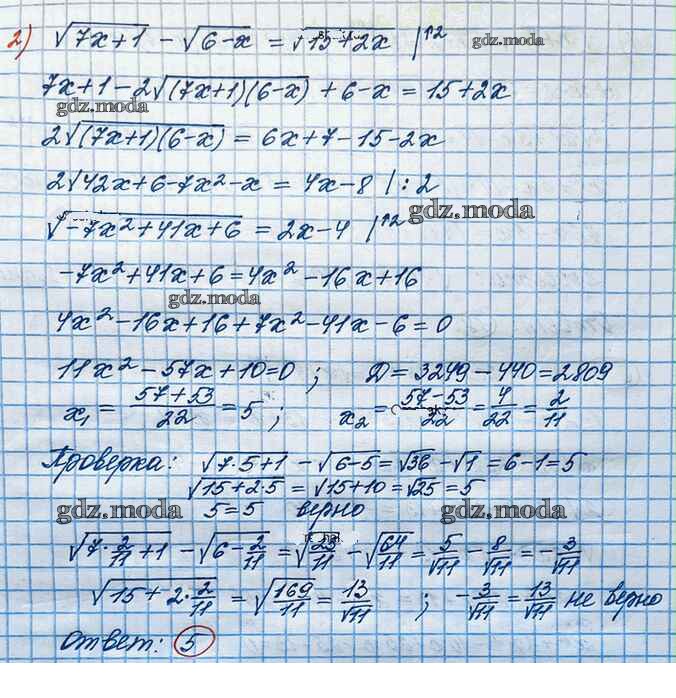 2) √(7x+1) − √(6−x) = √(15+2x) |↑2 gdz.moda
7x+1−2√((7x+1)(6−x)) + 6−x = 15+2x
gdz.moda
2√((7x+1)(6−x)) = 6x+7−15−2x
gdz.moda
2√42x+6−7x²−x = 4x−8 | :2
gdz.moda
√(−7x²+41x+6) = 2x−4 |↑2
−7x²+41x+6=4x²−16x+16
gdz.moda
4x²−16x+16+7x²−41x−6=0
11x²−57x+10=0 ; D=3249−440=2809
x₁ = (57+53)/22 = 5 ; x₂ = (57−53)/22 = 4/22 = 2/11
Проверка: √(7·5+1) − √(6−5) = √36 − √1 = 6−1=5
√(15+2·5) = √(15+10) = √25 = 5
5=5 верно
gdz.moda gdz.moda
√(7·2/11+1) − √(6−2/11) = √(25/11) − √(64/11) = 5/√11 − 8/√11 = −3/√11
√(15+2·2/11) = √(169/11) = 13/√11 ; −3/√11 = 13/√11 не верно
Ответ: 5